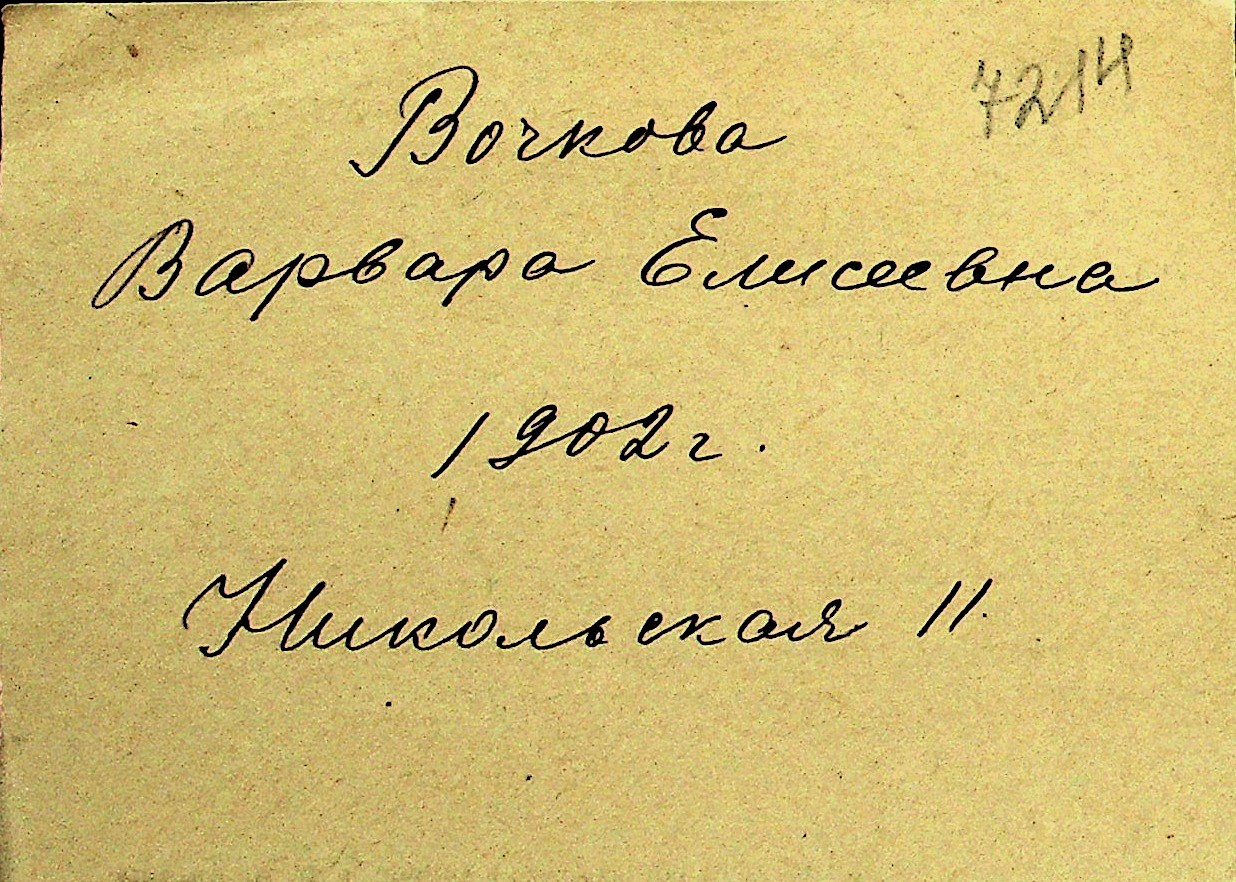 7214
Вочкова
Варвара Елисеевна
1902 г.
Никольская 11.